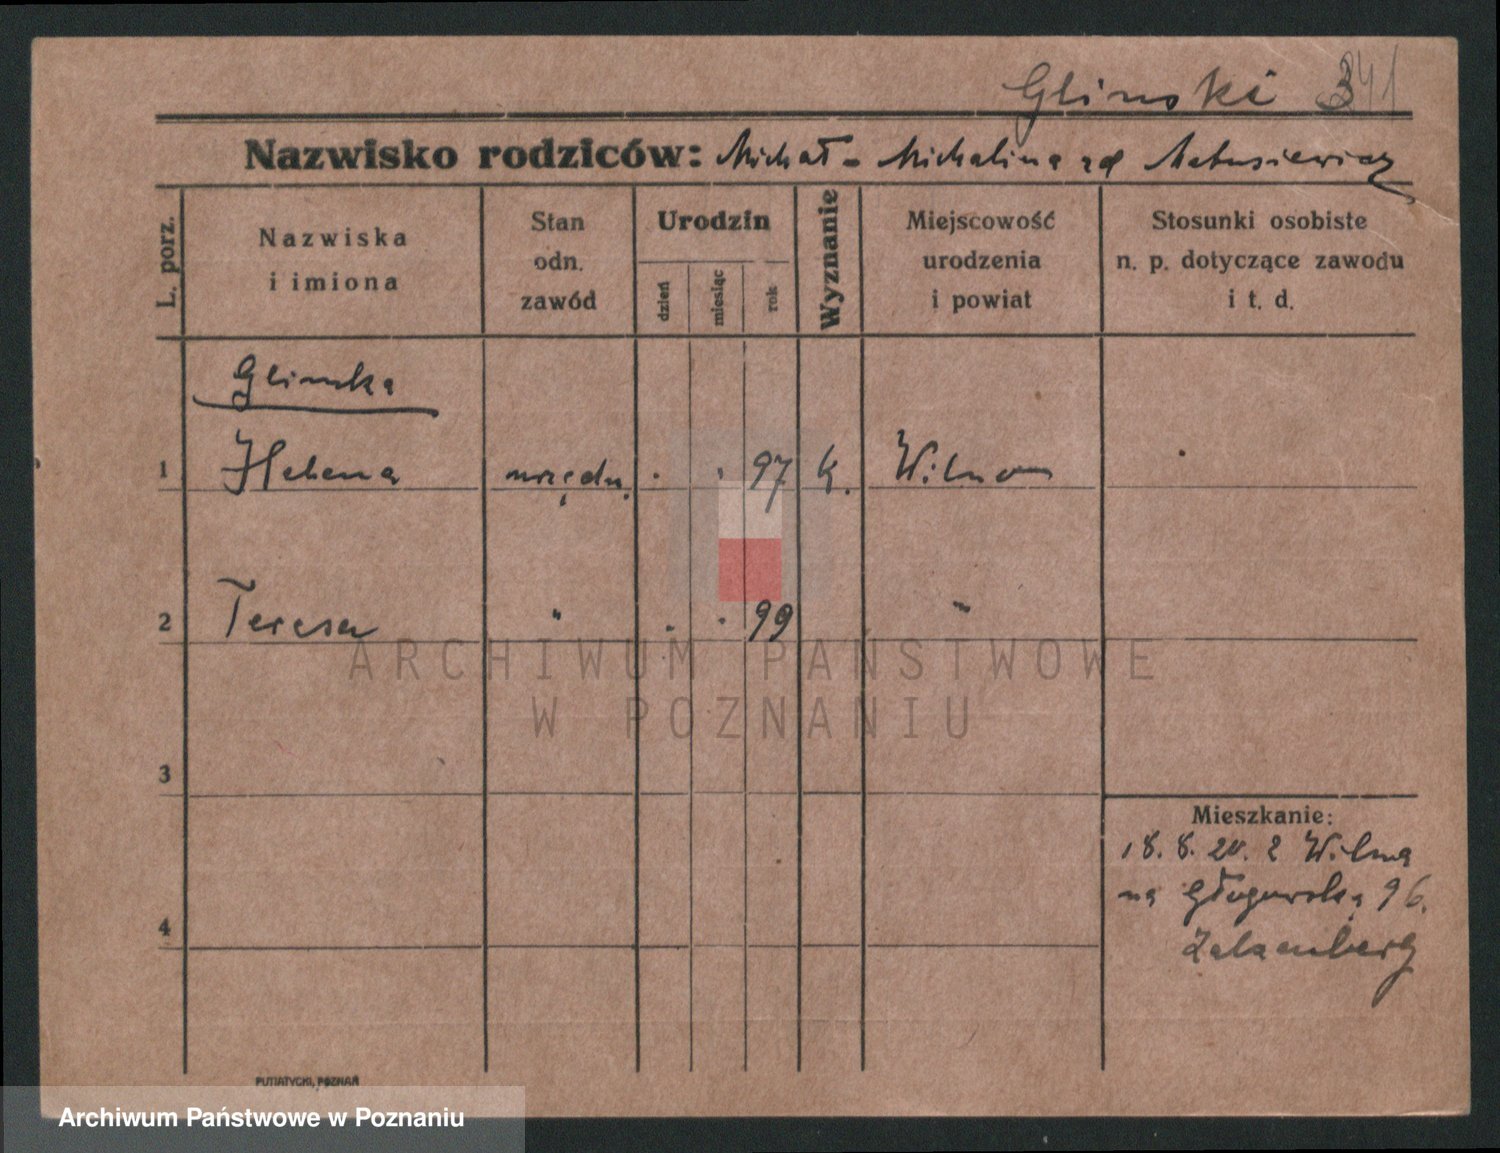 Glinski 341
Nazwisko rodziców: Michał - Michalina zd Matusiewicz
L. porz.
Nazwiska
i imiona
Stan
odn.
zawód
Urodzin
dzień
miesiąc
rok
Wyznanie
Miejscowość
urodzenia
i powiat
Stosunki osobiste
n. p. dotyczące zawodu
i t. d.
Glinska
1 Helena urzędn. . . 97 k. Wilno
2 Teresa " . . 99 "
3
4
Mieszkanie:
18. 8. 20. z Wilna
na Głogowską 96.
PUTIATYCKI, POZNAŃ
ARCHIWUM PAŃSTWOWE
W POZNANIU
Archiwum Państwowe w Poznaniu